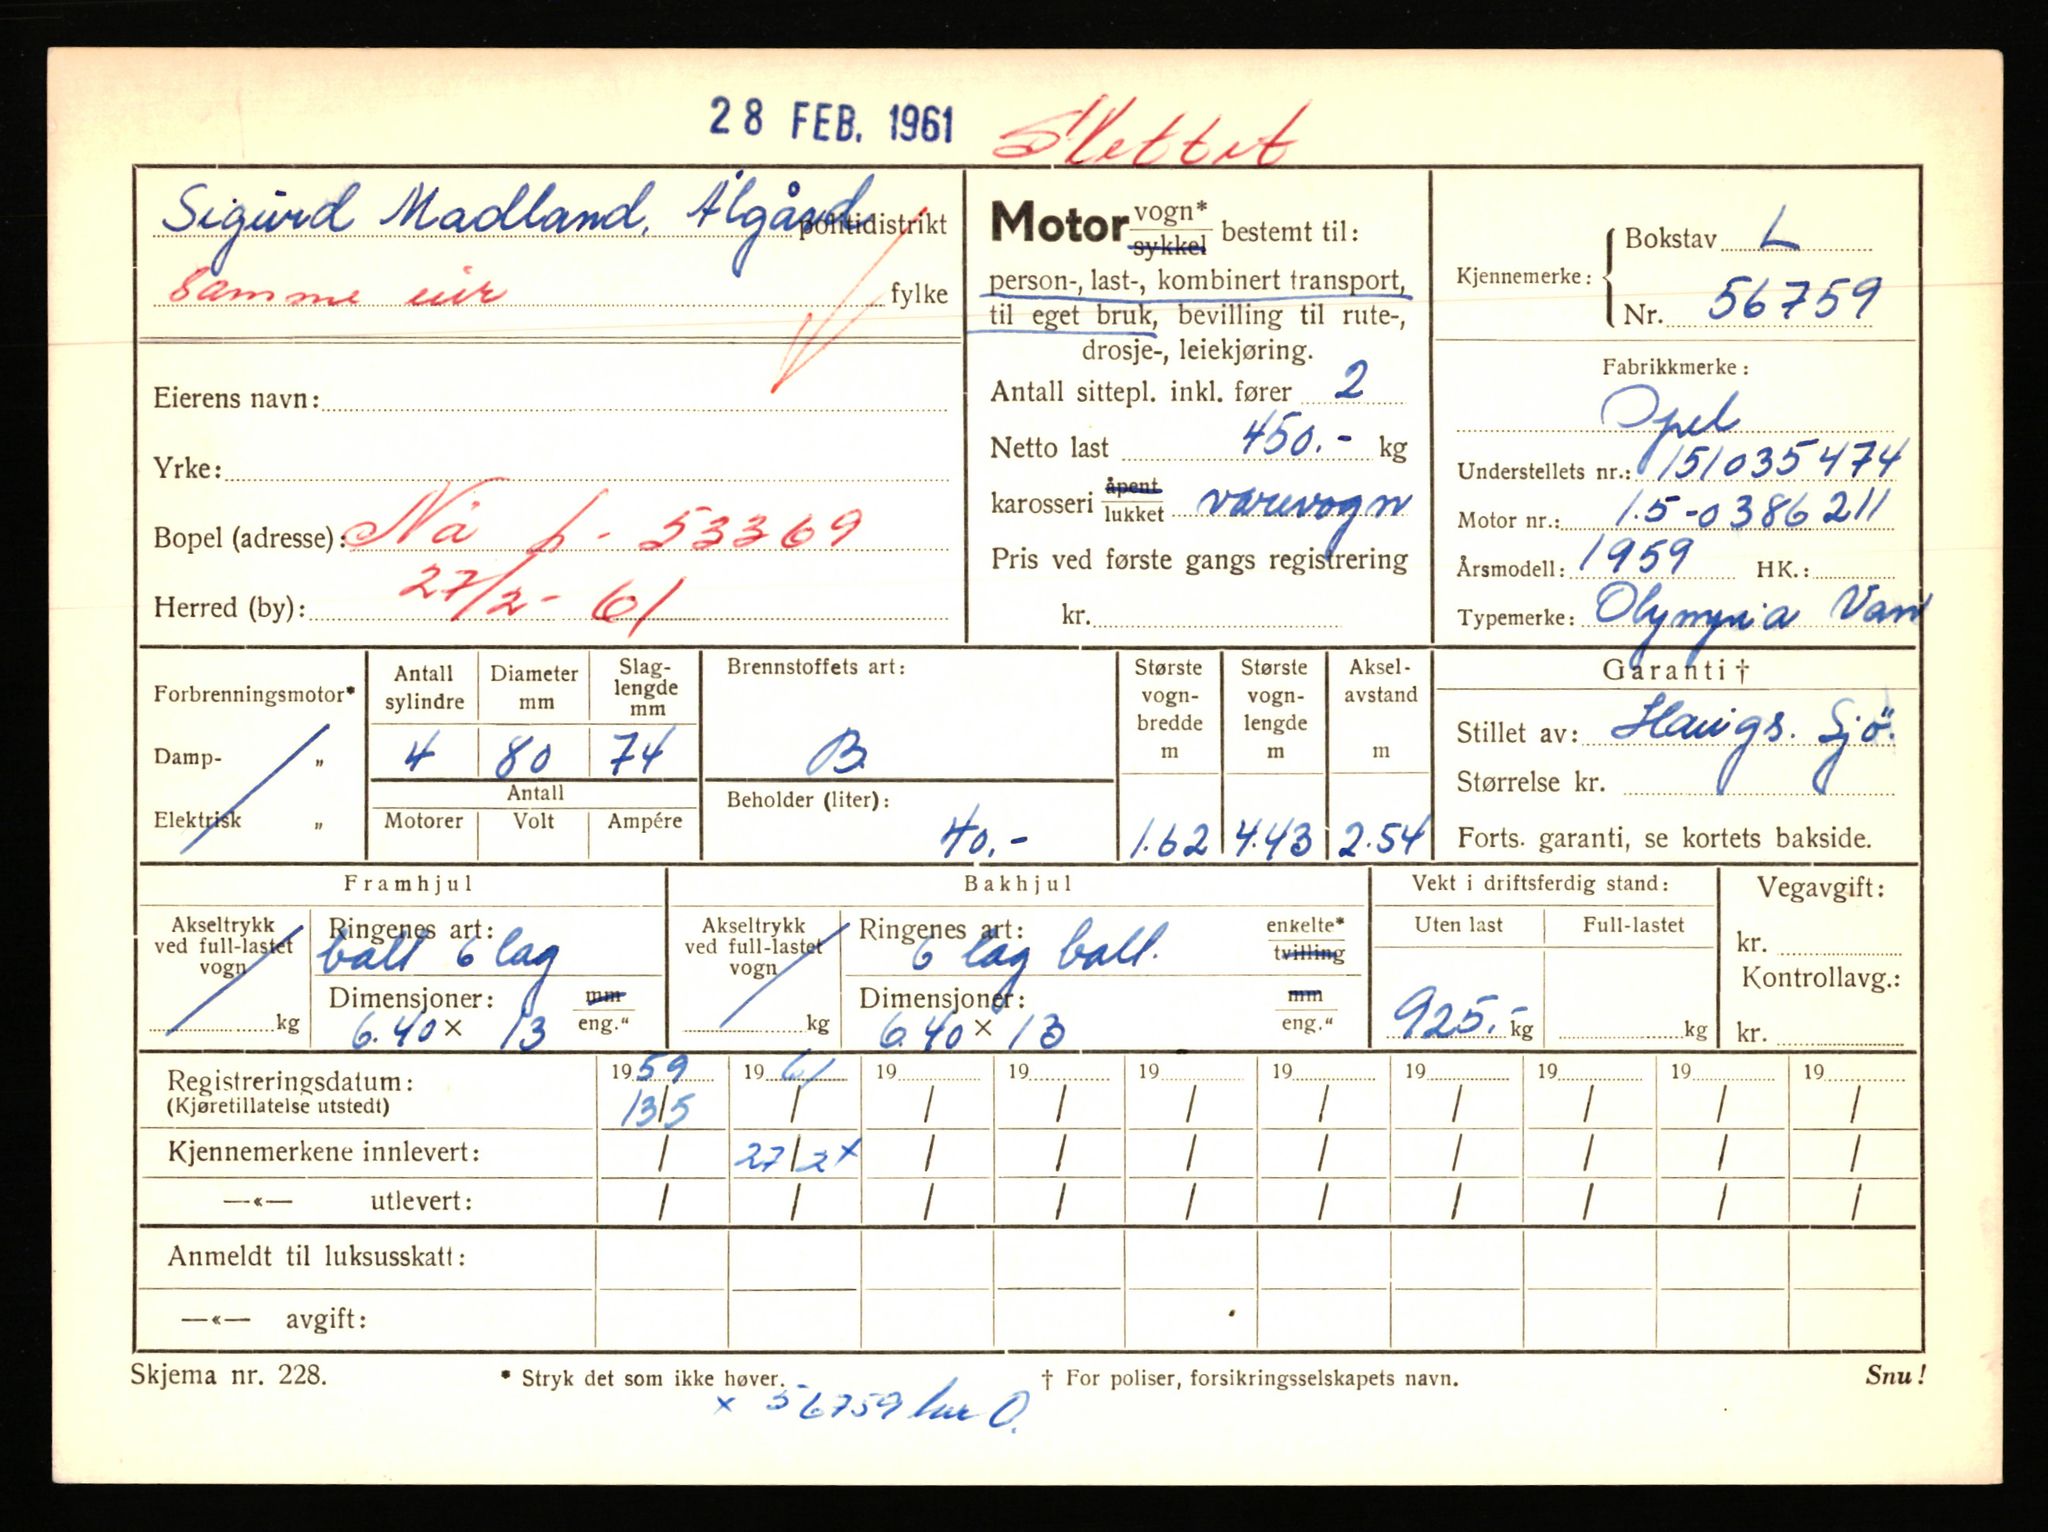 28 FEB. 1961 Slettet
Sigurd Madland, Ålgård politidistrikt
samme eier fylke
Eierens navn:
Yrke:
Bopel (adresse): Nå p - 53369
Herred (by): 27/2- 61
Motor vogn* sykkel bestemt til:
person-, last-, kombinert transport,
til eget bruk, bevilling til rute-,
drosje-, leiekjøring.
Antall sittepl. inkl. fører 2
Netto last 450.- kg
karosseri åpent lukket varevogn
Pris ved første gangs registrering
kr.
Kjennemerke: Bokstav L
Nr. 56759
Fabrikkmerke:
Opel
Understellets nr.: 151035474
Motor nr.: 1.5-0386211
Årsmodell: 1959 HK.:
Typemerke: Olympia Van
Forbrenningsmotor*
Damp- „
Elektrisk „
Antall sylindre Diameter mm Slag-lengde mm
4 80 74
Antall
Motorer Volt Ampére
Brennstoffets art:
B.
Beholder (liter):
40.-
Største vogn-bredde m Største vogn-lengde m Aksel-avstand m
1.62 4.43 2.54
Garanti †
Stillet av: Haugs. Sjö.
Størrelse kr.
Forts. garanti, se kortets bakside.
Framhjul
Akseltrykk ved full-lastet vogn kg
Ringenes art:
ball 6 lag
Dimensjoner: mm eng."
6.40 × 13
Bakhjul
Akseltrykk ved full-lastet vogn kg
Ringenes art: enkelte* tvilling
6 lag ball.
Dimensjoner: mm eng."
6.40 × 13
Vekt i driftsferdig stand:
Uten last Full-lastet
925.- kg kg
Vegavgift:
kr.
Kontrollavg.:
kr.
Registreringsdatum: 19 59 19 61 19 19 19 19 19 19 19 19
(Kjøretillatelse utstedt) 13/5 / / / / / / / / /
Kjennemerkene innlevert: / 27/2 x / / / / / / / /
—«— utlevert: / / / / / / / / / /
Anmeldt til luksusskatt:
—«— avgift:
Skjema nr. 228. * Stryk det som ikke høver. † For poliser, forsikringsselskapets navn. Snu!
x 56759 har O.